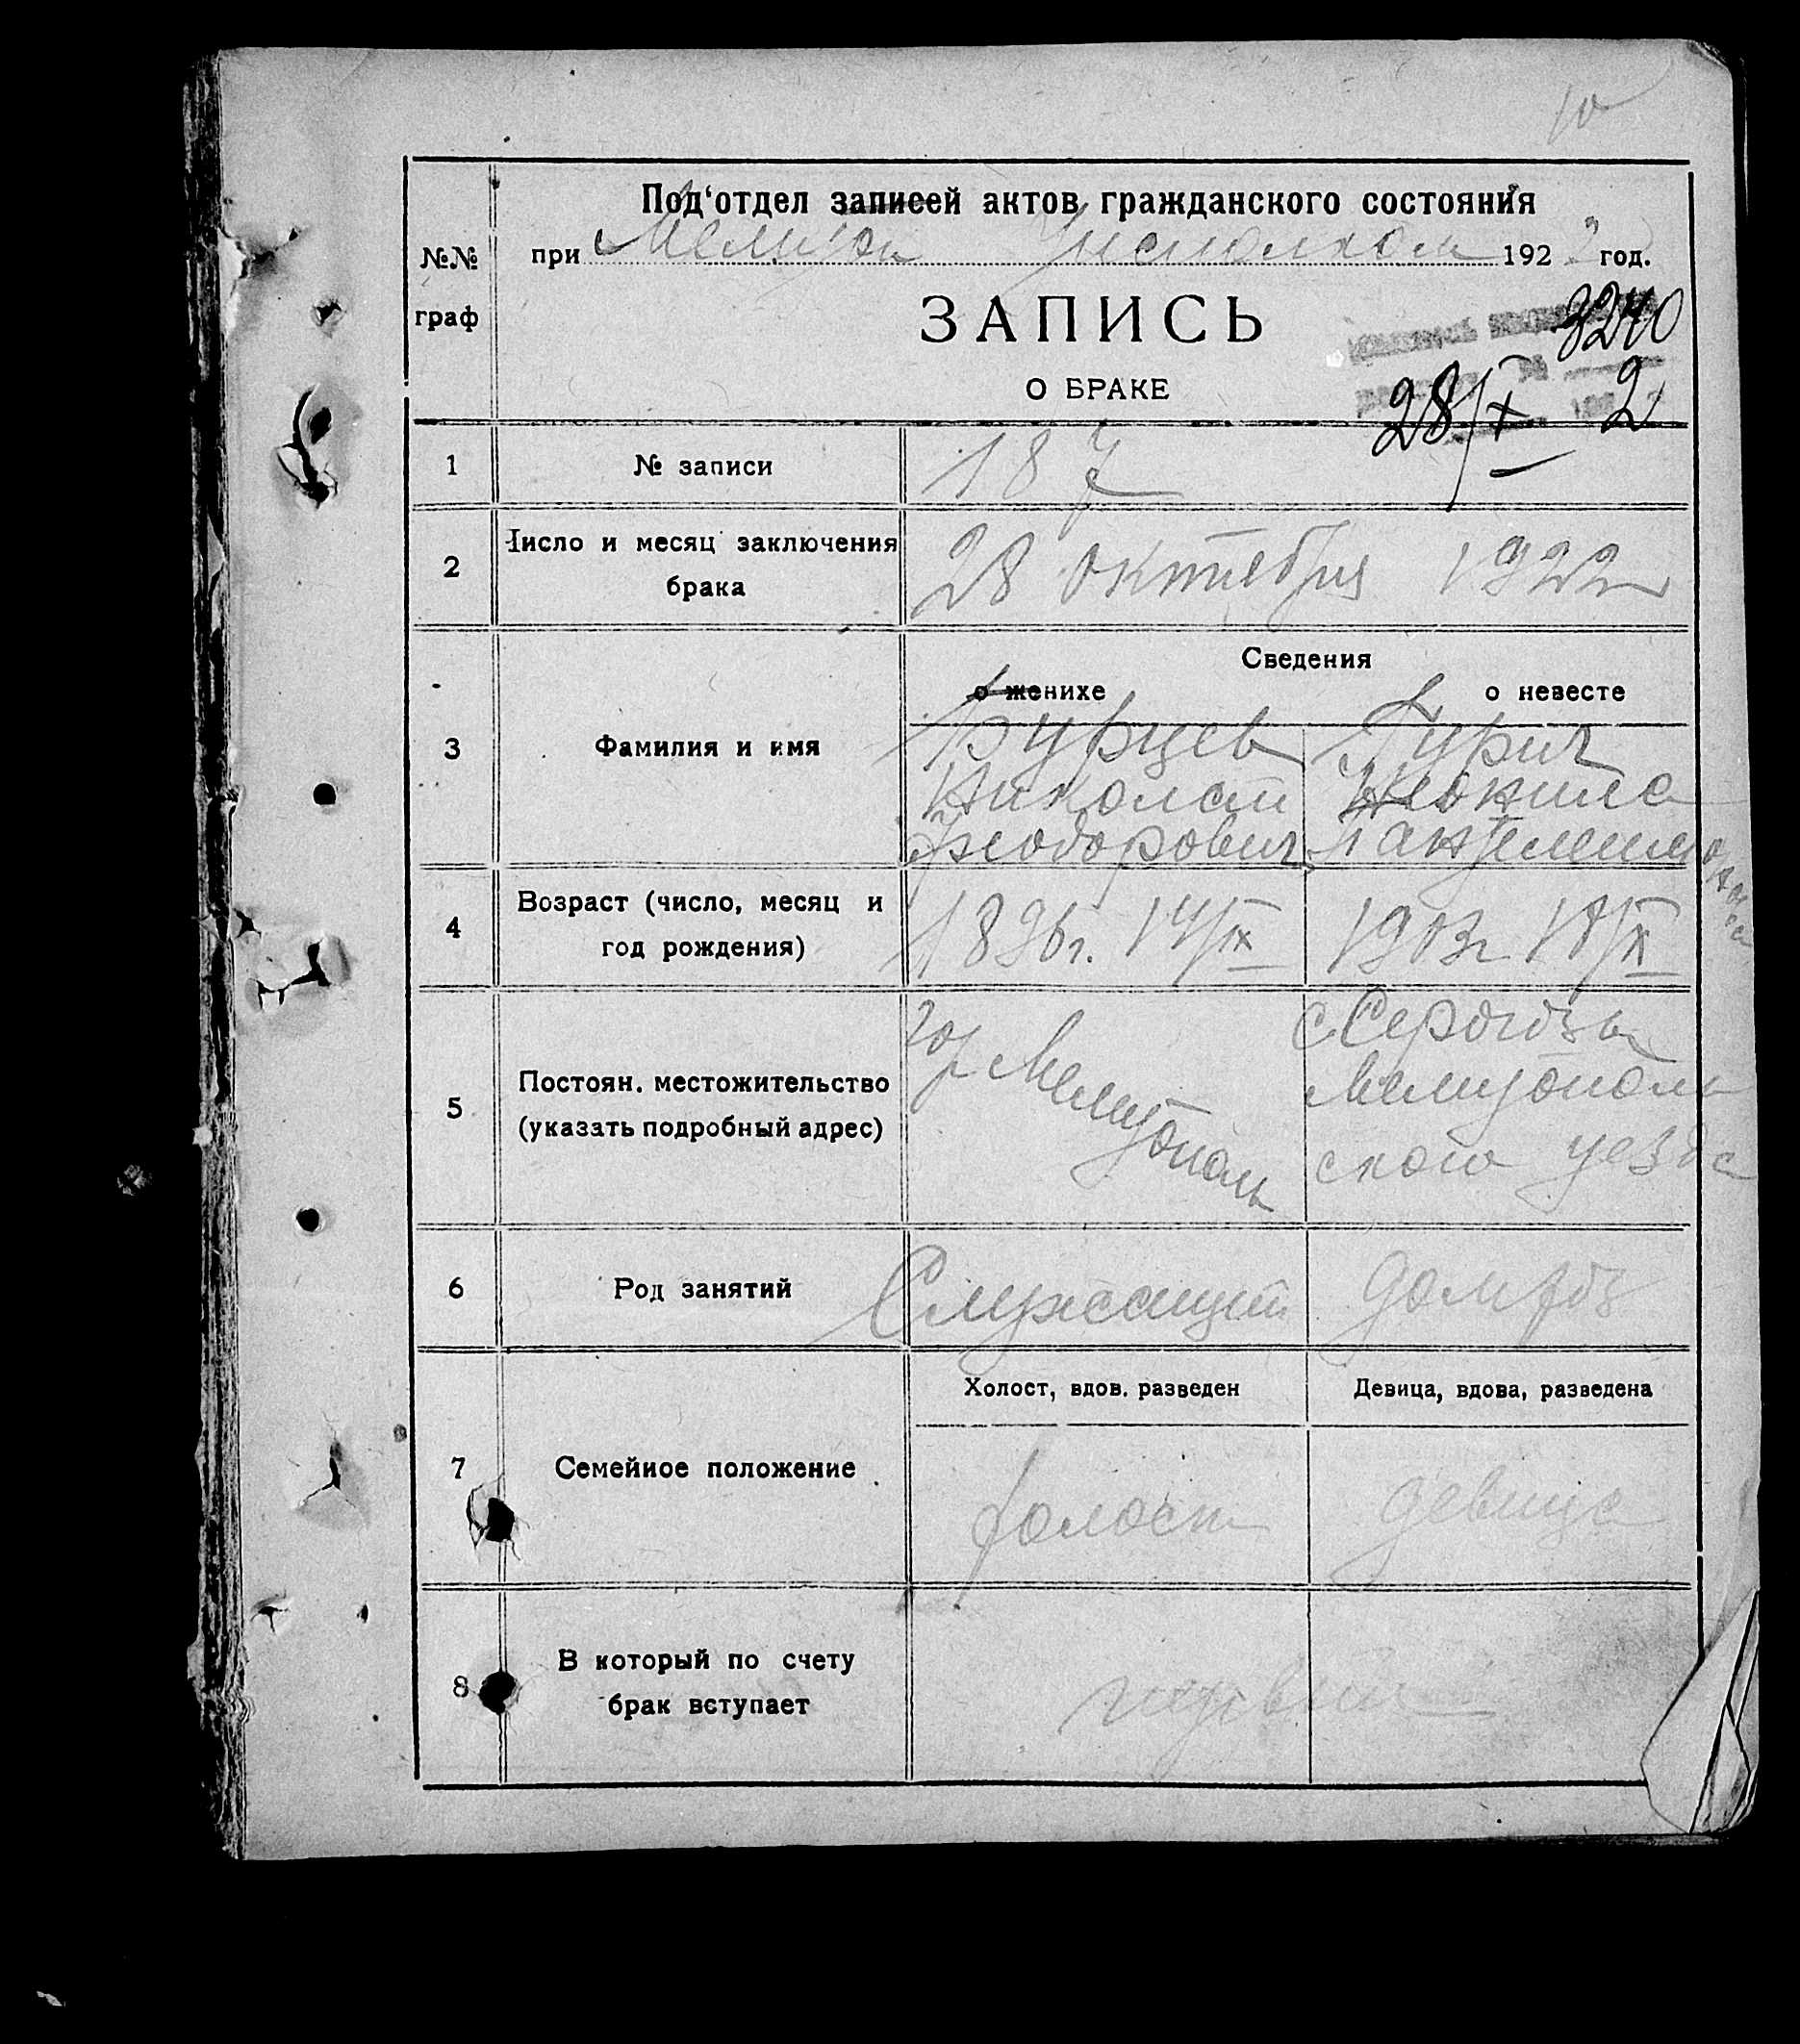 10
Под'отдел записей актов гражданского состояния
№№ граф
при Мелит Исполком 1922 год.
ЗАПИСЬ
3240
О БРАКЕ
28/X 2
1 № записи 187
2 Число и месяц заключения брака 28 октября 1922
Сведения
о женихе о невесте
3 Фамилия и имя
Бурцев Гурич
Николай
Феодорович Пантелеимоновна
4 Возраст (число, месяц и год рождения)
1896г. 14/IX 1903г 18/X
5 Постоян. местожительство (указать подробный адрес)
гор Мелитополь
с Серогозы
Мелитополь
ского уезда
6 Род занятий Служащий домраб
7 Семейное положение
Холост, вдов. разведен Девица, вдова, разведена
холост девица
8 В который по счету брак вступает
первый